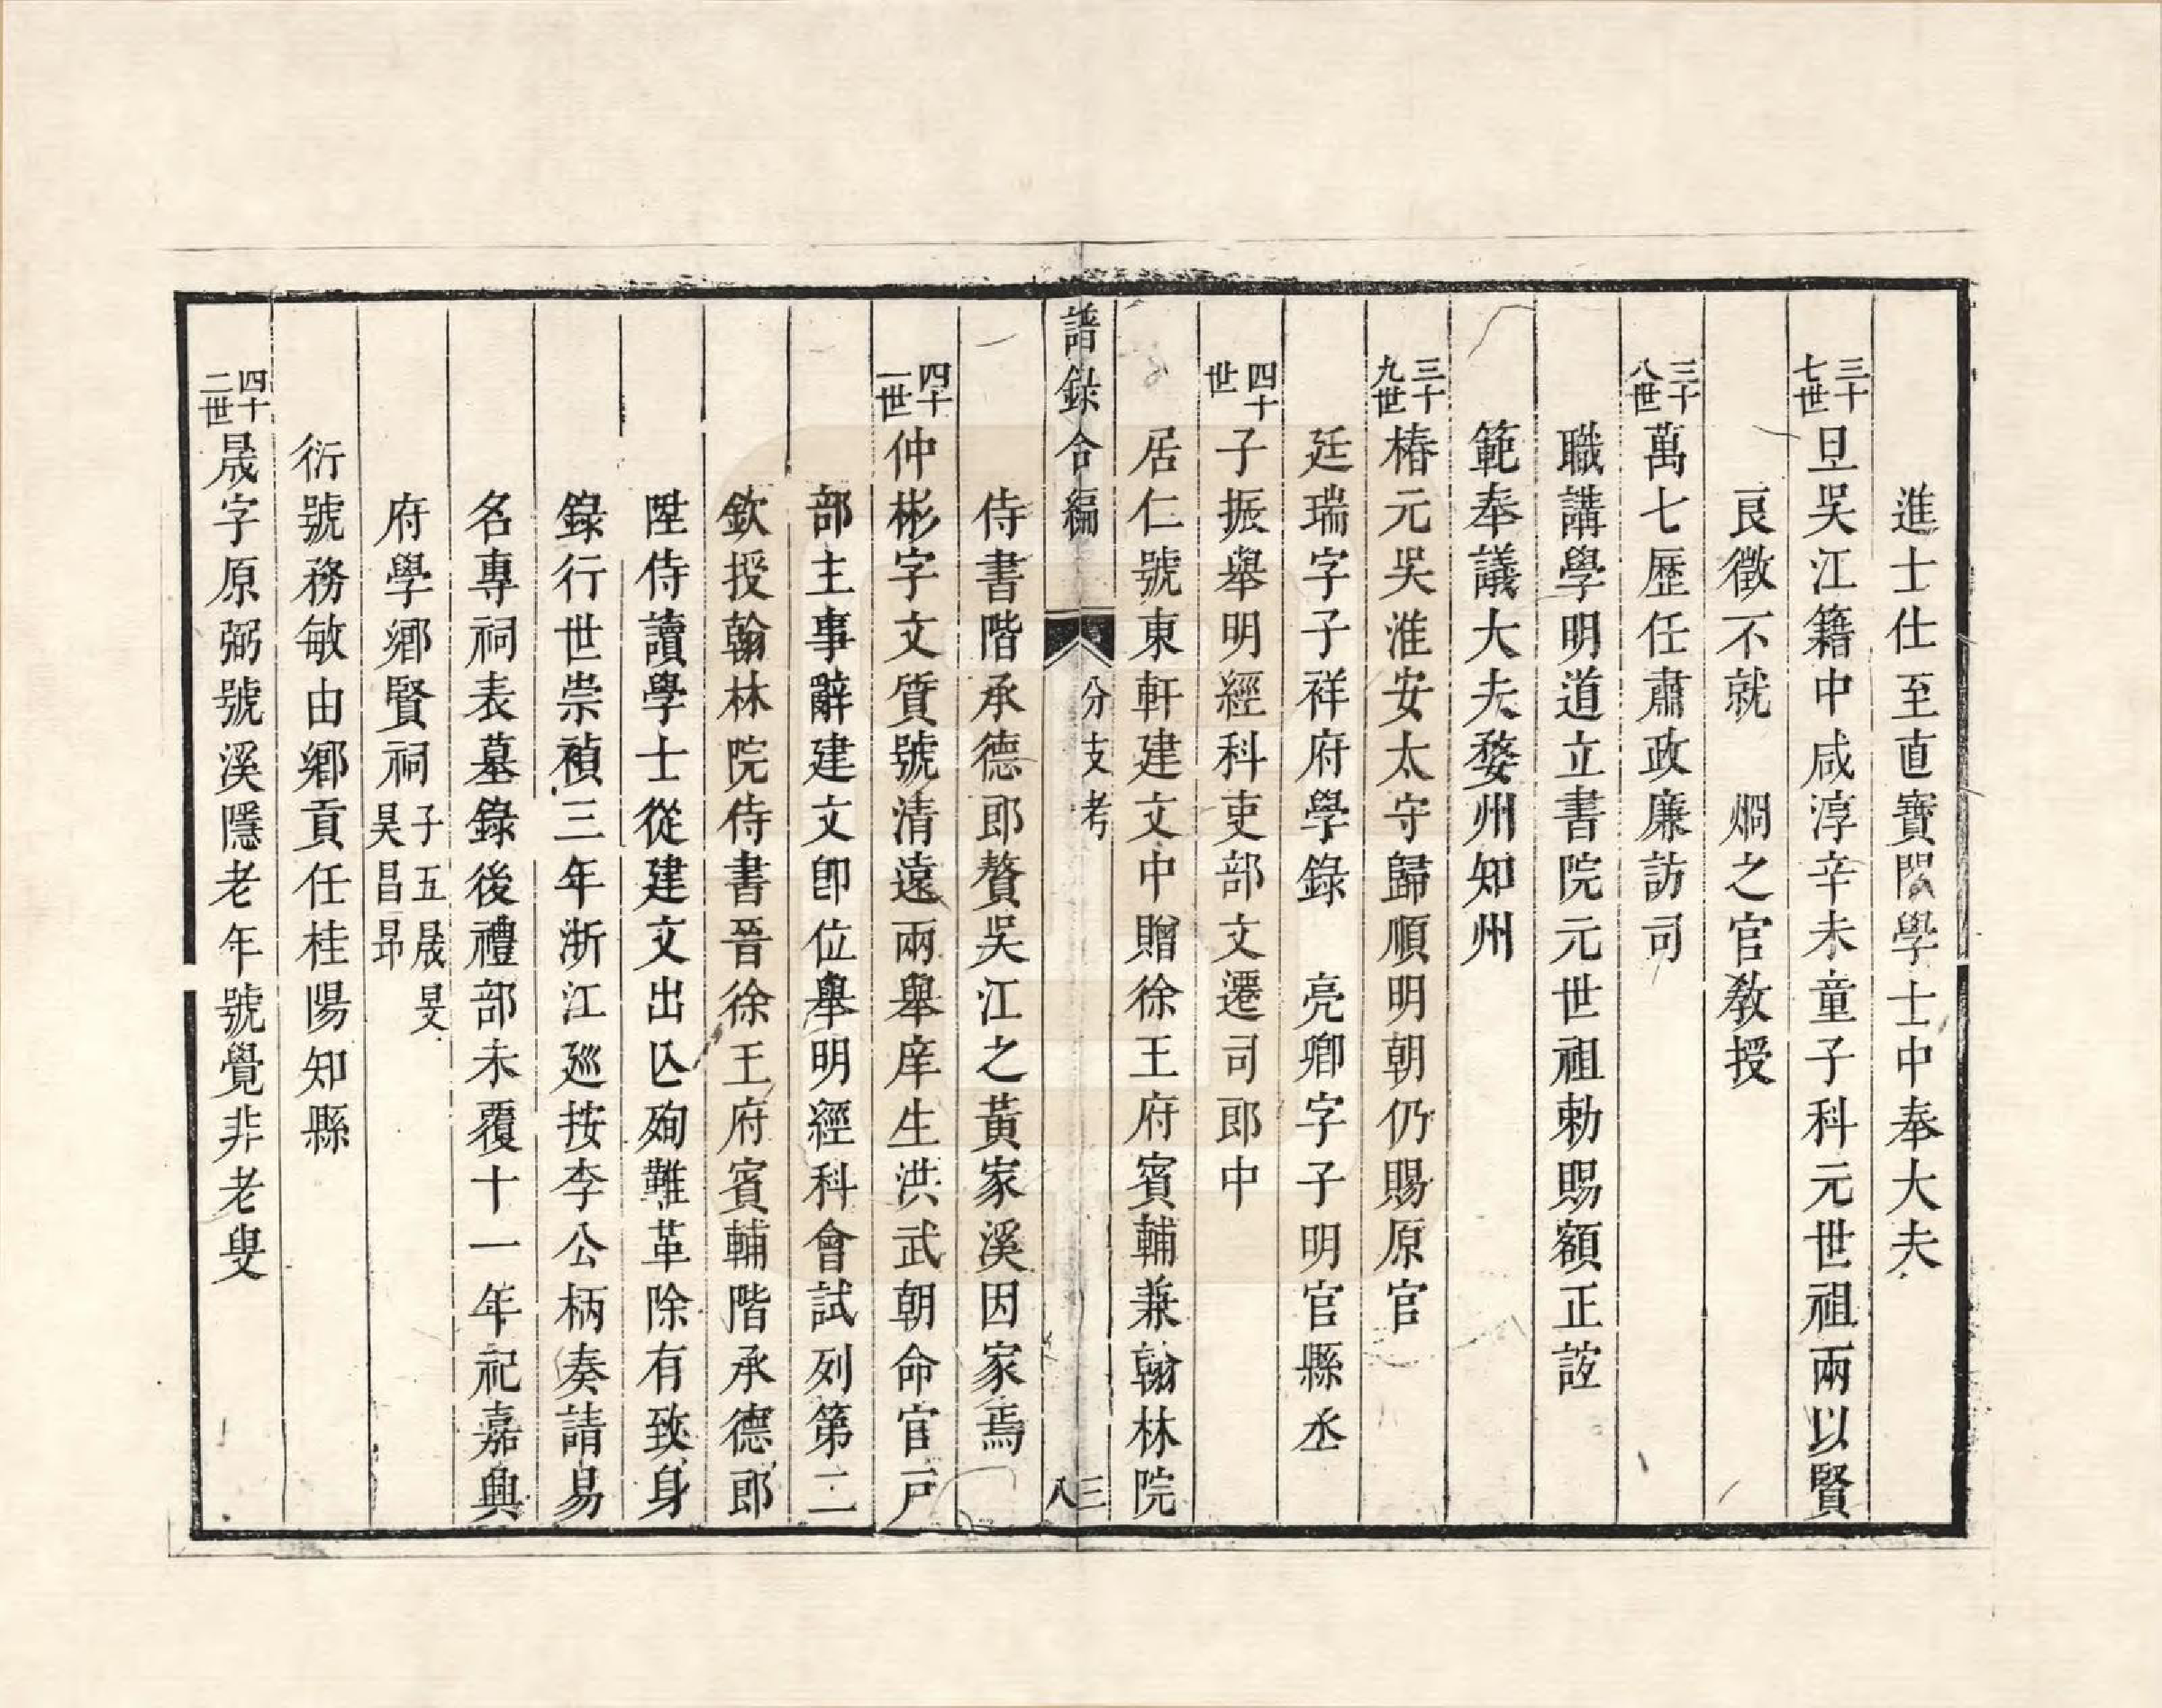 進士仕至直寶閣學士中奉大夫
三十七世旦吳江籍中咸淳辛未童子科元世祖兩以賢
良徵不就　烱之官敎授
三十八世萬七歷任肅政廉訪司
職講學明道立書院元世祖勅賜額正誼
範奉議大夫婺州知州
三十九世椿元吳淮安太守歸順明朝仍賜原官
廷瑞字子祥府學錄　亮卿字子明官縣丞
四十世子振舉明經科吏部文遷司郎中
居仁號東軒建文中贈徐王府賓輔兼翰林院
譜錄合編　分支考　三八
侍書階承德郎贅吳江之黃家溪因家焉
四十一世仲彬字文質號清遠兩舉庠生洪武朝命官戶
部主事辭建文卽位舉明經科會試列第二
欽授翰林院侍書晉徐王府賓輔階承德郎
陞侍讀學士從建文出亾殉難革除有致身
錄行世崇禎三年浙江廵按李公柄奏請易
名專祠表墓錄後禮部未覆十一年祀嘉興
府學鄉賢祠子五晟旻昊昌昻
衍號務敏由鄉貢任桂陽知縣
四十二世晟字原弼號溪隱老年號覺非老叟